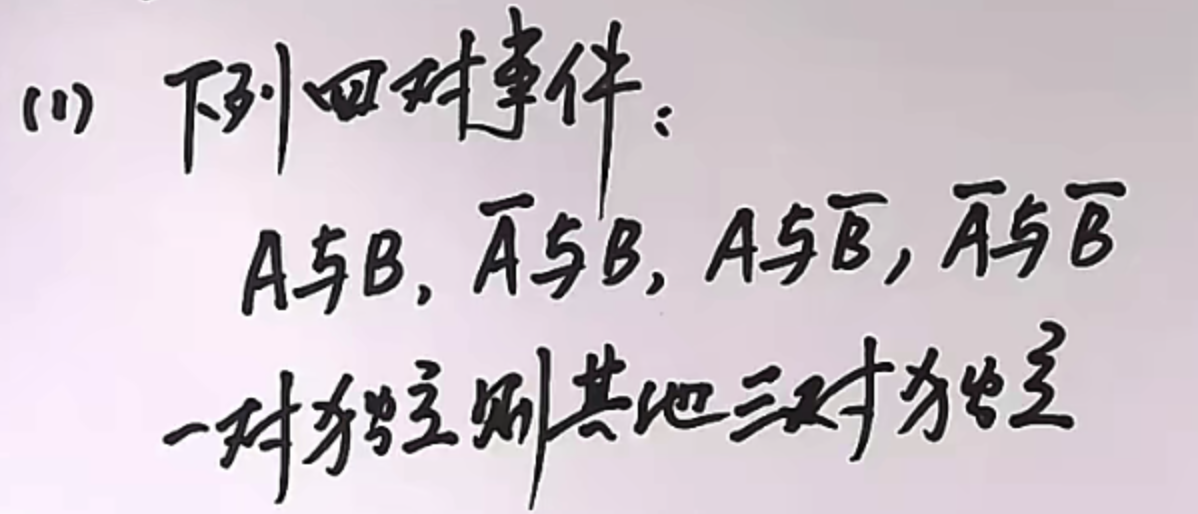 (1) 下列四对事件:
A与B, A̅与B, A与B̅, A̅与B̅
一对独立则其他三对独立